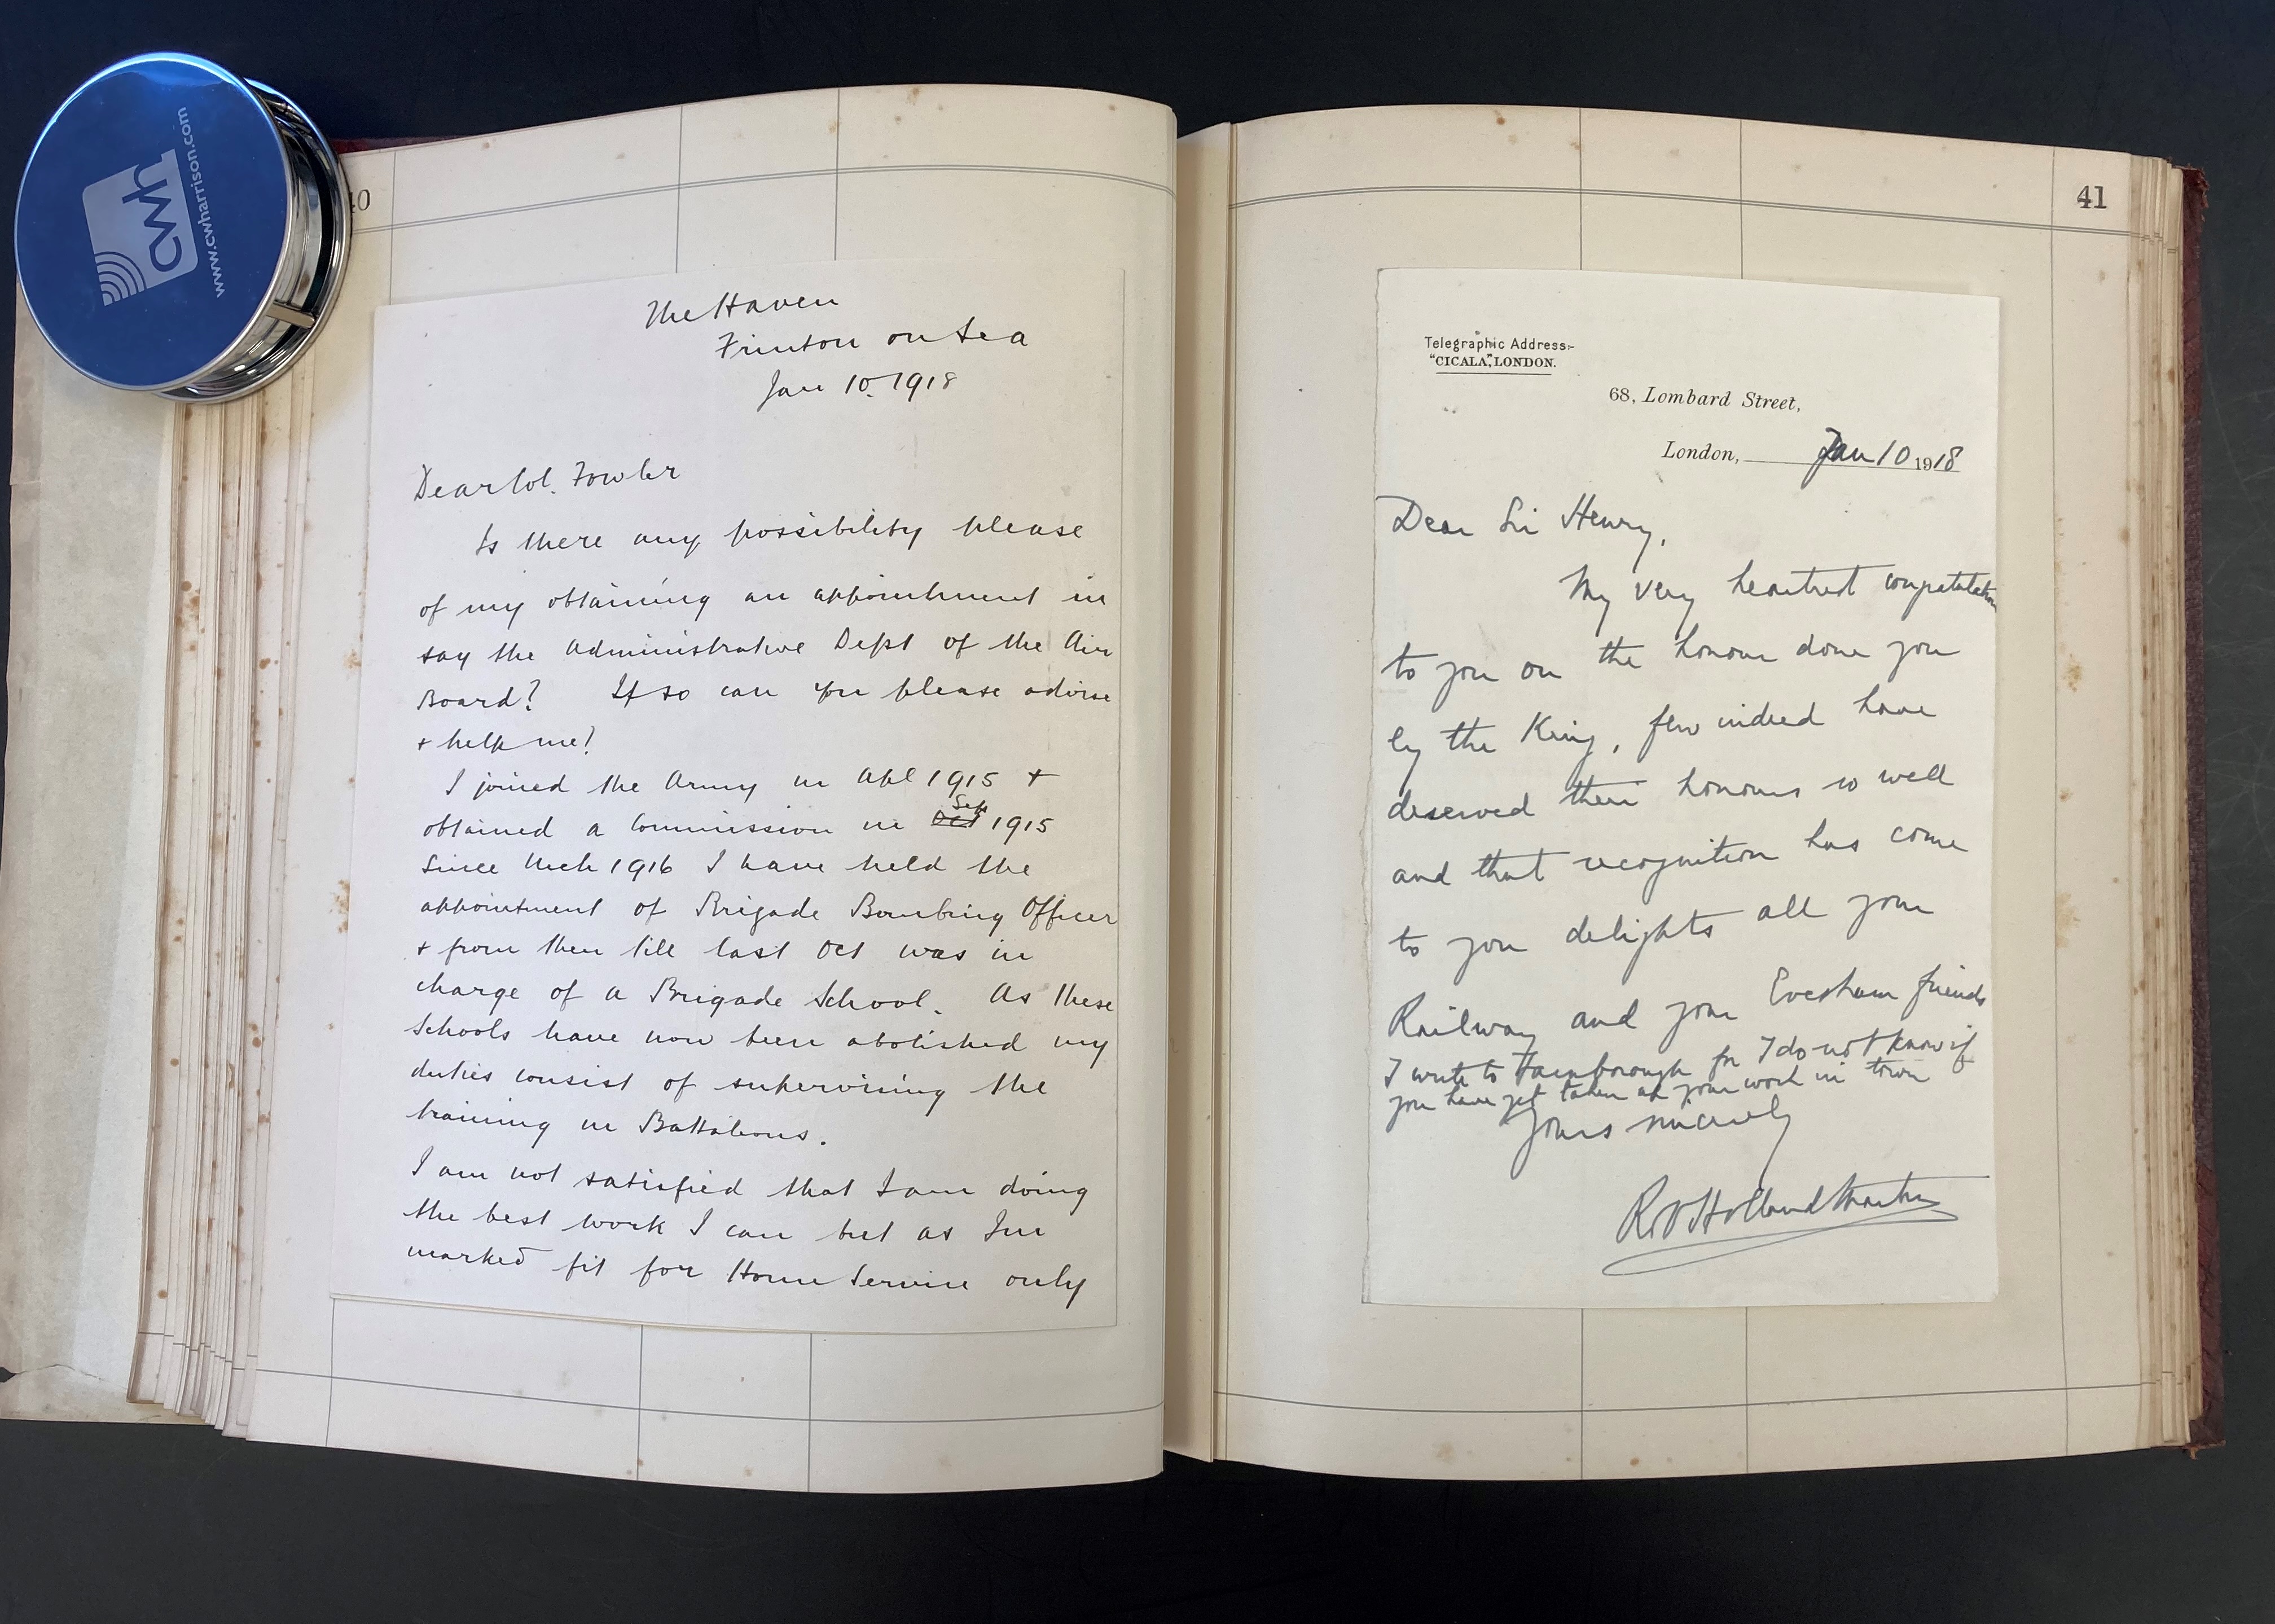 cwh
www.cwharrison.com
40
The Haven
Frinton on Sea
Jan 10. 1918
Dear Col. Fowler
Is there any possibility please
of my obtaining an appointment in
say the Administrative Dept of the Air
Board? If so can you please advise
+ help me?
I joined the Army in Apl 1915 +
obtained a Commission in Oct Sep 1915
Since Mch 1916 I have held the
appointment of Brigade Bombing Officer
+ from then till last Oct was in
charge of a Brigade School. As these
Schools have now been abolished my
duties consist of supervising the
training in Battalions.
I am not satisfied that I am doing
the best work I can but as I'm
marked fit for Home Service only
41
Telegraphic Address:-
"CICALA," LONDON.
68, Lombard Street,
London, Jan 10 1918
Dear Sir Henry,
My very heartiest congratulations
to you on the honour done you
by the King, few indeed have
deserved their honours so well
and that recognition has come
to you delights all your
Railway and your Evesham friends
I write to Farnborough for I do not know if
you have yet taken up your work in town
Yours sincerely
R V Holland Martin